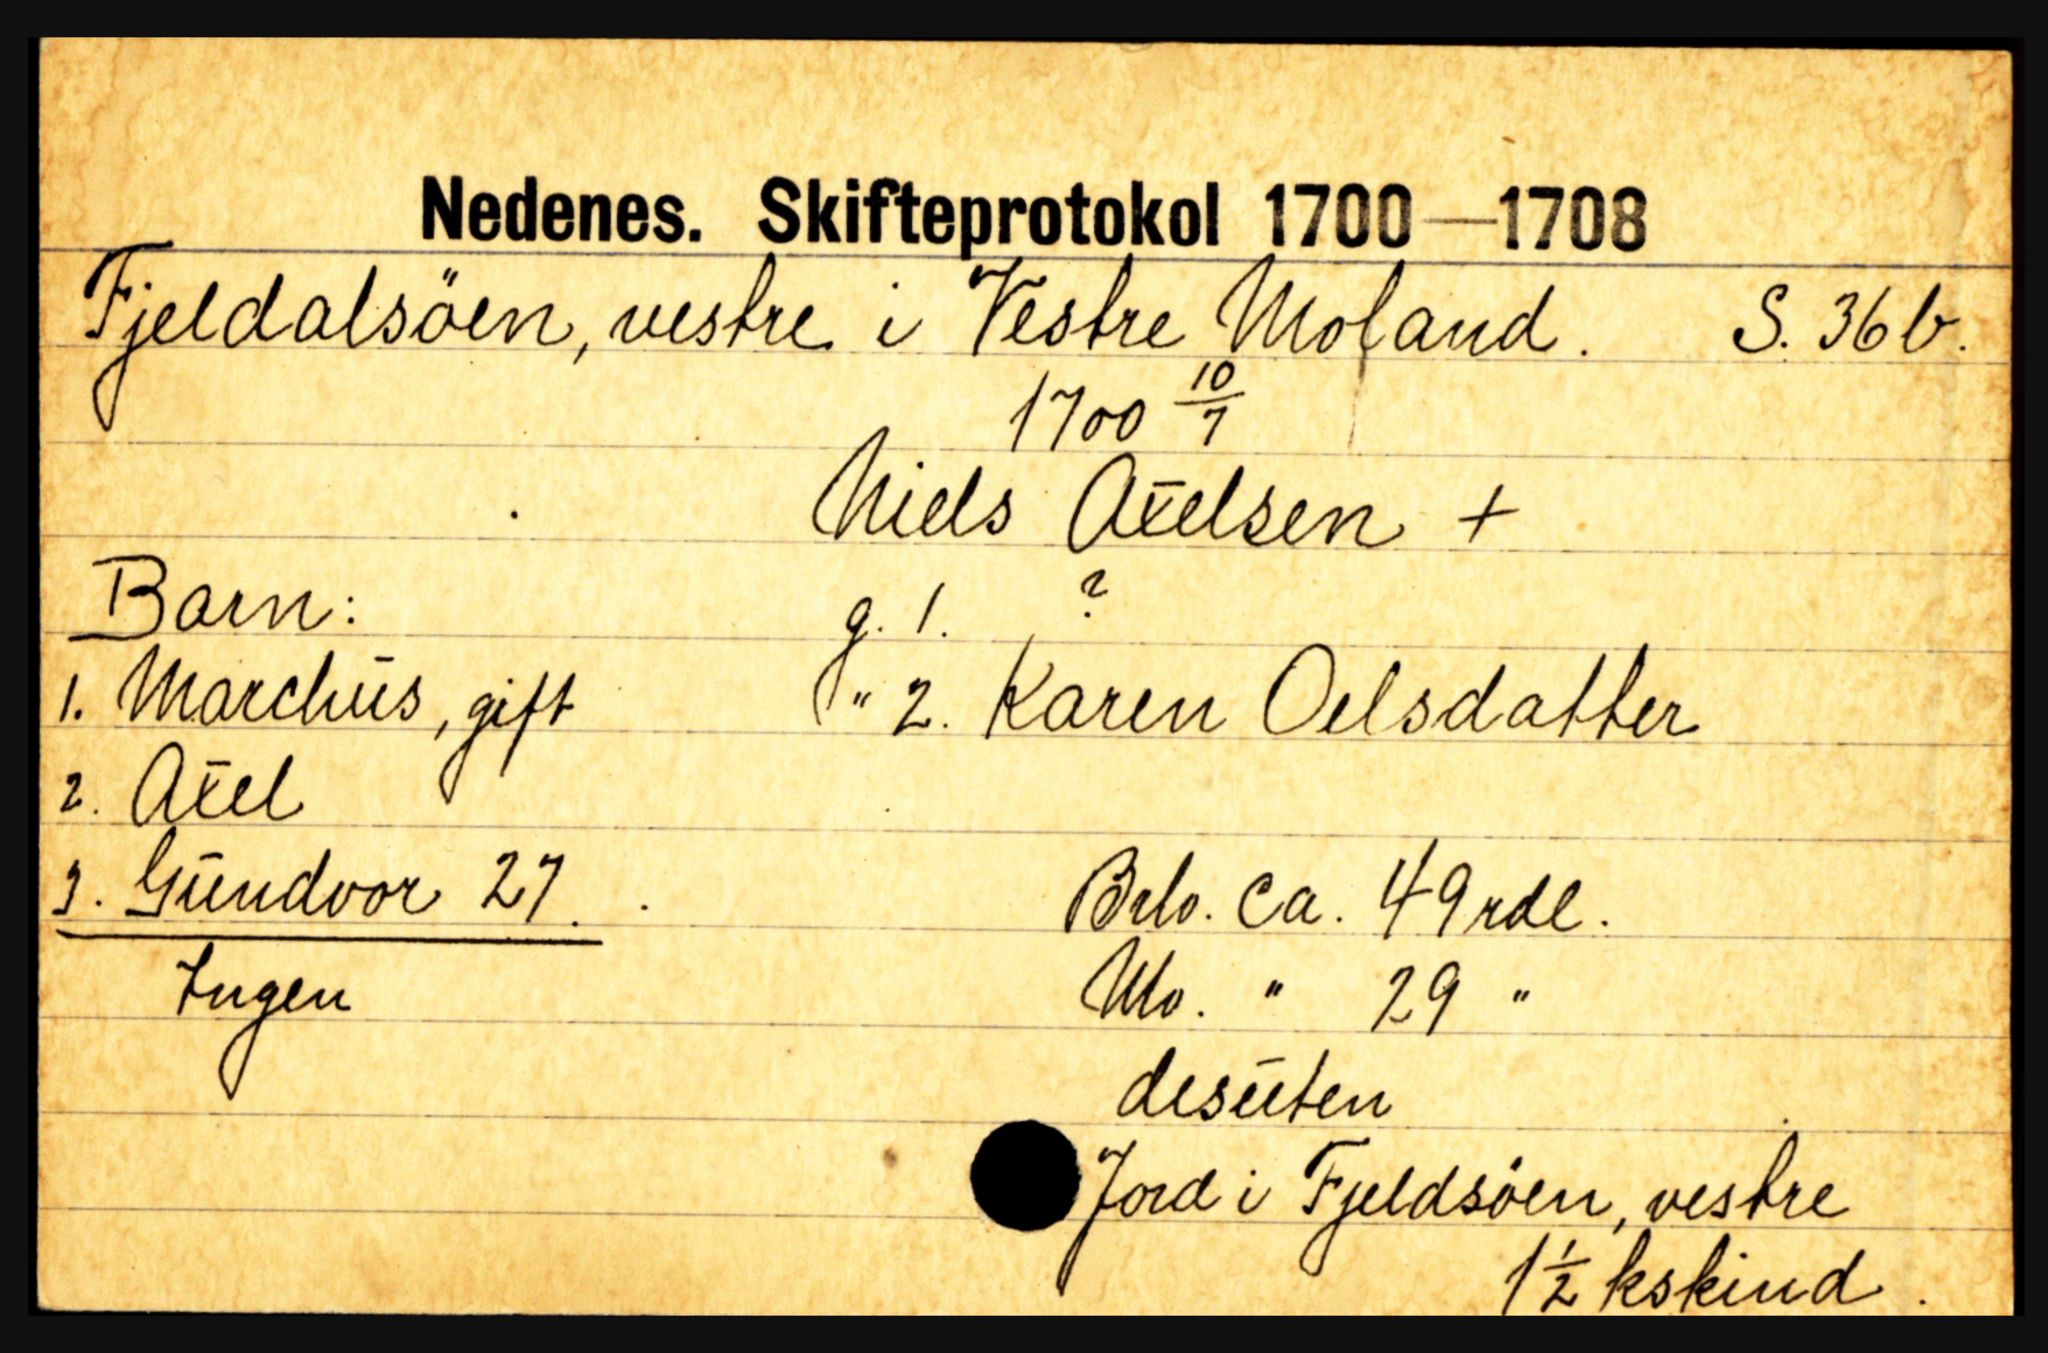 Nedenes. Skifteprotokol 1700—1708
Fjeldalsöen, vestre i Vestre Moland. S. 36b.
1700 10/7
Niels Axelsen +
Barn: g. 1. ?
1. Marchūs, gift " 2. Karen Oelsdatter
2. Axel
3. Gūndvor 27. Brlo. ca. 49 rdl.
Ingen Nlo. " 29 "
desūten
Jord i Fjeldsöen, vestre
1 1/2 kskind.